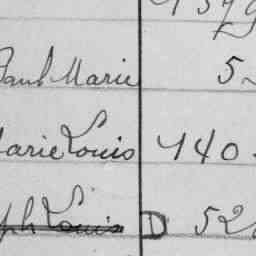 Paul Marie 5
Marie Louis 140
ph Louis D 52